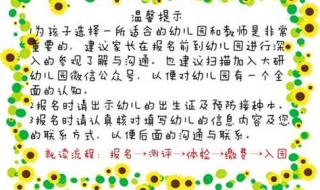 温馨提示
1为孩子选择一所适合的幼儿园和教师是非常
重要的，建议家长在报名前到幼儿园进行深
入的参观了解与沟通，也建议扫描加入大研
幼儿园微信公众号，以便对幼儿园有一个全
面的认知。
2报名时请出示幼儿的出生证及预防接种本。
3报名时请认真核对填写幼儿的信息内容及您
的联系方式，以便后面的沟通与联系。
就读流程：报名→测评→体检→缴费→入园